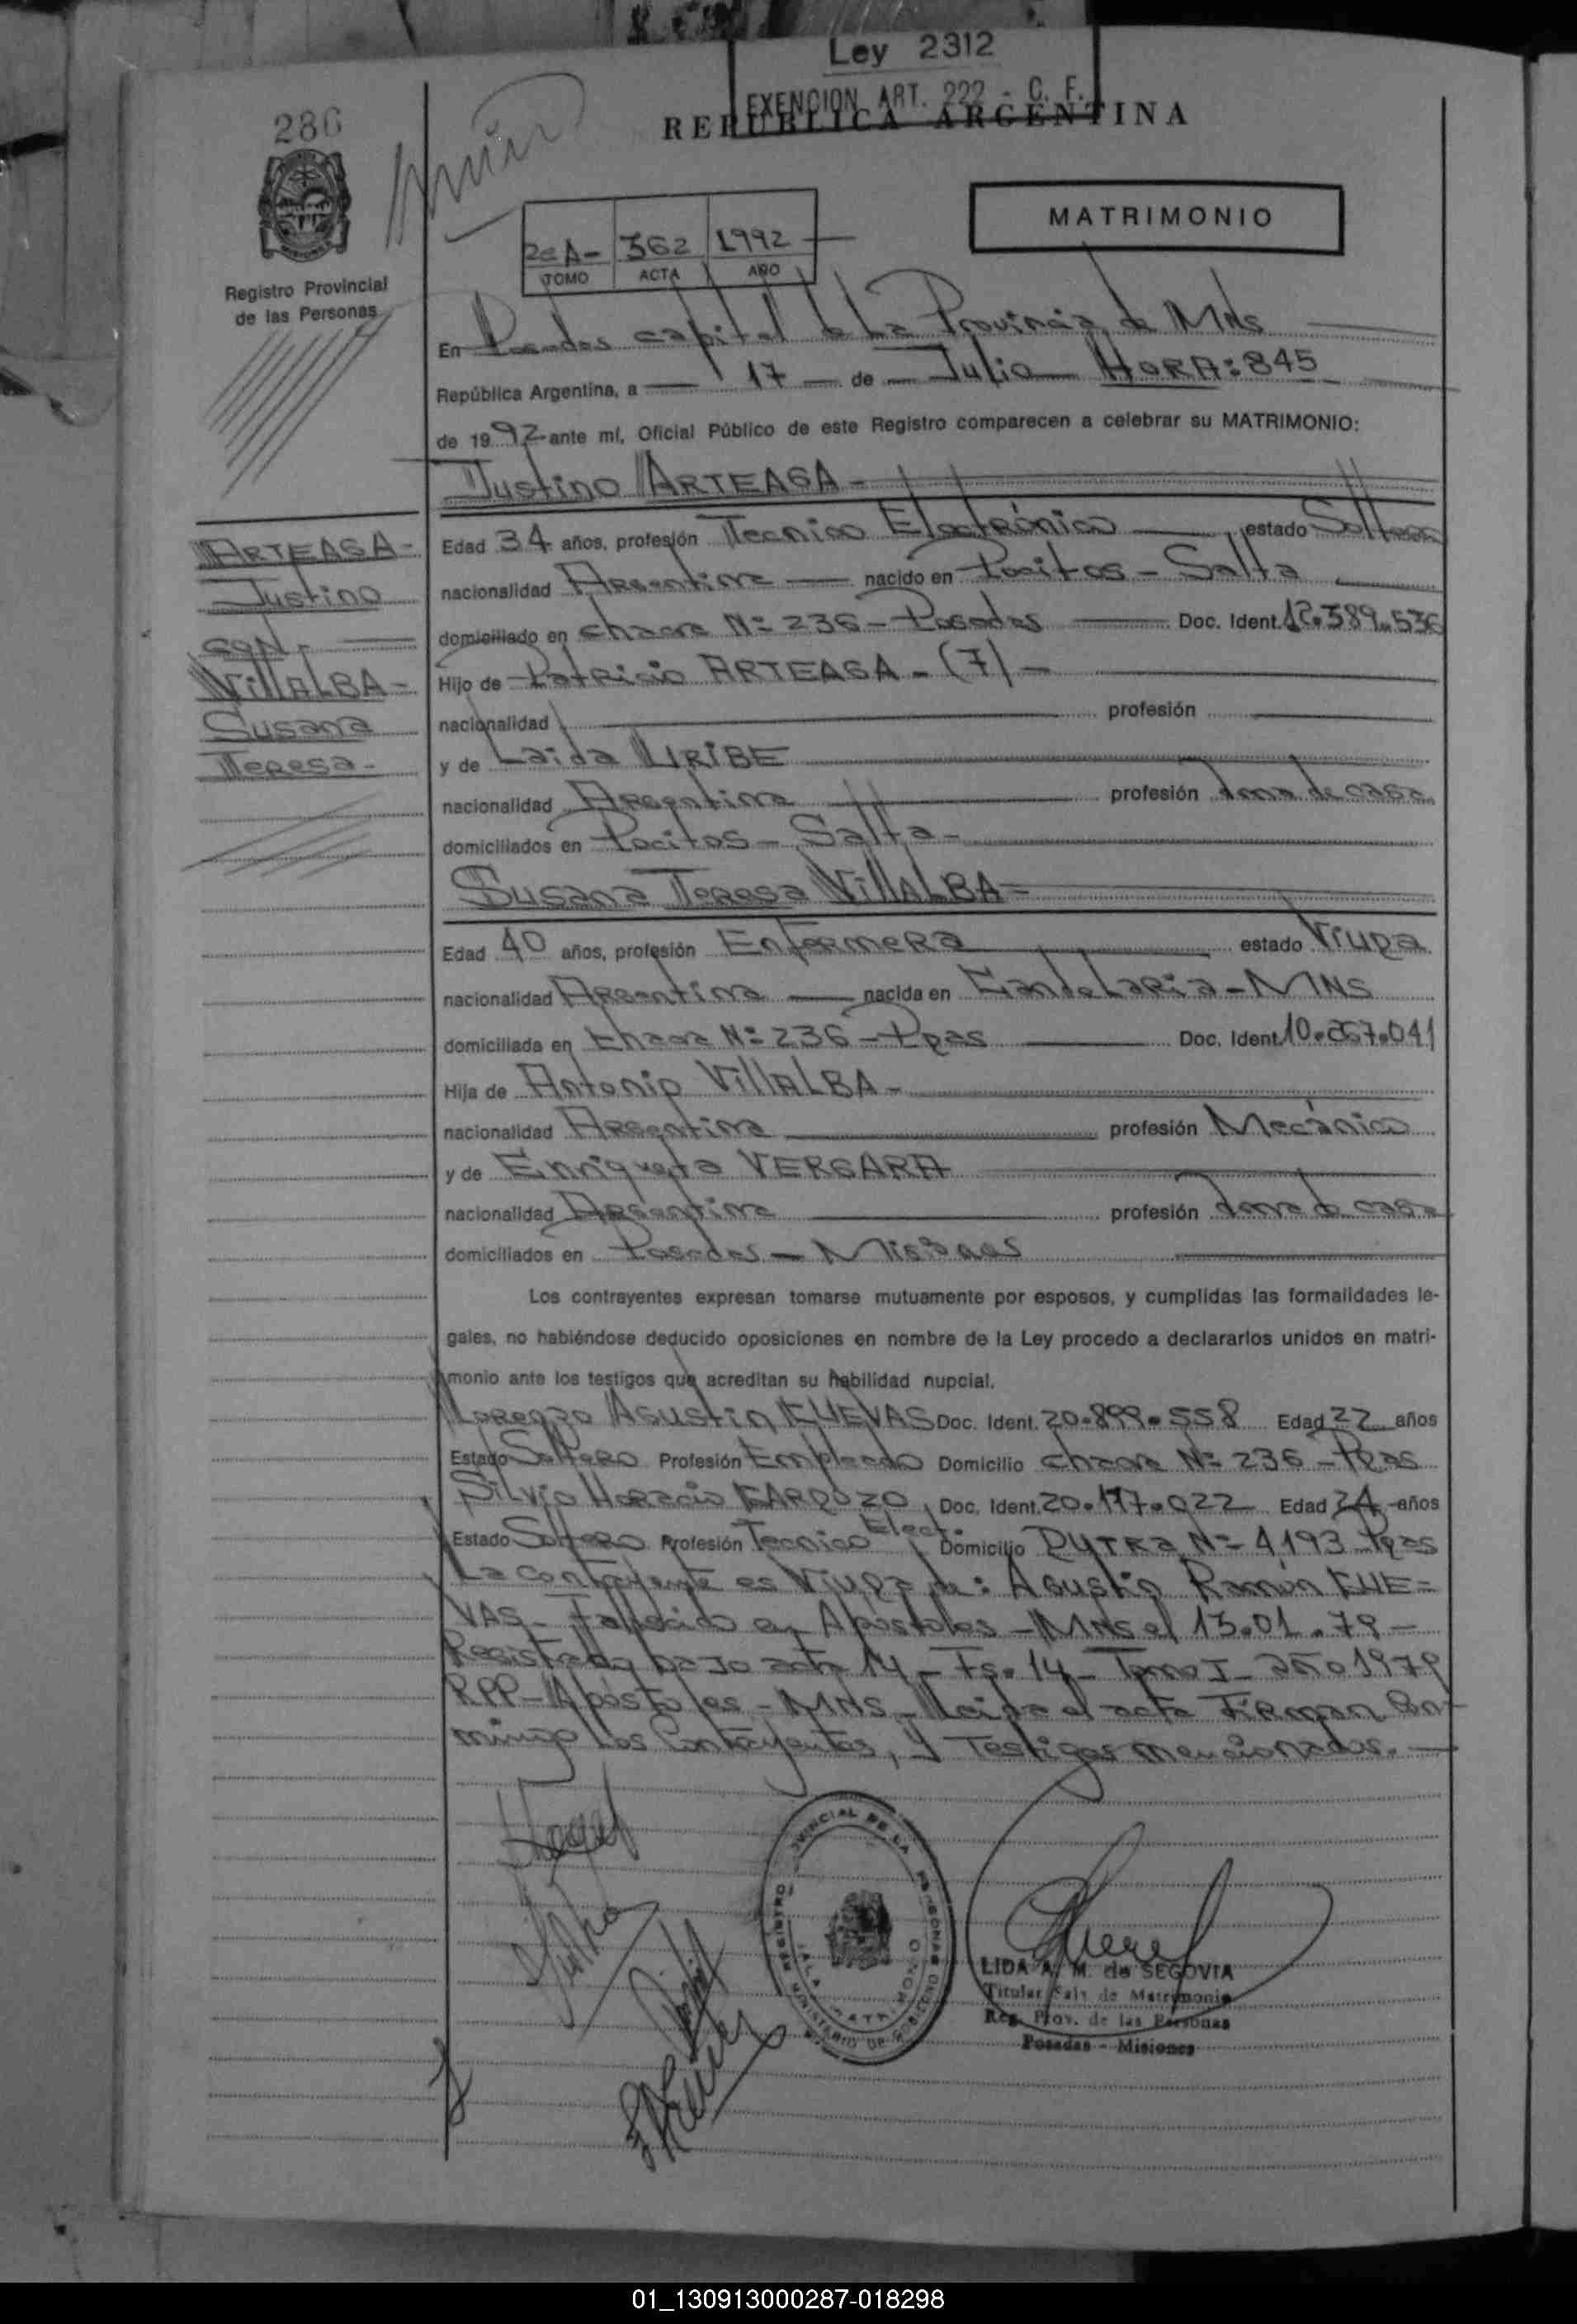 Ley 2312
EXENCION ART. 222 - C. F.
REPUBLICA ARGENTINA
286
MATRIMONIO
2º A- 362 1992
TOMO ACTA AÑO
Registro Provincial
de las Personas
En Posadas capital de La Provincia de MNS
República Argentina, a 17 de Julio HORA: 845
de 1992 ante mí, Oficial Público de este Registro comparecen a celebrar su MATRIMONIO:
Justino ARTEAGA-
ARTEAGA-
Justino
CON-
VillALBA-
Susana
Teresa-
Edad 34 años, profesión Tecnico Electrónico estado Soltero
nacionalidad Argentina nacido en Pocitos - Salta
domiciliado en chacra Nº 236 - Posadas Doc. Ident. 12.389.536
Hijo de Patricio ARTEAGA - (7) -
nacionalidad profesión
y de Laida URIBE
nacionalidad Argentina profesión ama de casa
domiciliados en Pocitos - Salta -
Susana Teresa VillALBA=
Edad 40 años, profesión Enfermera estado Viuda
nacionalidad Argentina nacida en CandeLaria - MNS
domiciliada en chacra Nº 236 - Pdas Doc. Ident. 10.267.041
Hija de Antonio VillALBA -
nacionalidad Argentina profesión Mecánico
y de Enriqueta VERGARA
nacionalidad Argentina profesión ama de casa
domiciliados en Posadas - Misiones
Los contrayentes expresan tomarse mutuamente por esposos, y cumplidas las formalidades le-
gales, no habiéndose deducido oposiciones en nombre de la Ley procedo a declararlos unidos en matri-
monio ante los testigos que acreditan su habilidad nupcial.
Lorenzo Agustin CUEVAS Doc. Ident. 20.899.558 Edad 22 años
Estado Soltero Profesión Empleado Domicilio chacra Nº 236 - Pdas
Silvio Horacio CARDOZO Doc. Ident. 20.117.022 Edad 24 años
Estado Soltero Profesión Tecnico Elect. Domicilio Nº 4193 Pdas
La contrayente es Viuda de: Agustin Ramón CUE=
VAS - Fallecido en Apóstoles - MNS el 13.01.79 -
Registrado bajo acta 14 - Fº. 14 - Tomo I - año 1979
RPP - Apóstoles - MNS - Leida el acta Firman Con-
migo Los Contrayentes, y Testigos mencionados. -
REGISTRO PROVINCIAL DE LA PERSONAS
MINISTERIO DE GOBIERNO
SALA MATRIMONIO
LIDA A. M. de SEGOVIA
Titular Sala de Matrimonio
Reg. Prov. de las Personas
Posadas - Misiones
01_130913000287-018298